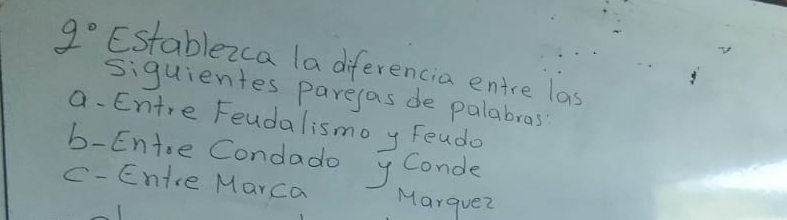 2° Establezca la diferencia entre las
siguientes parejas de palabras:
a- Entre Feudalismo y Feudo
b- Entre Condado y Conde
c- Entre Marca Marquez